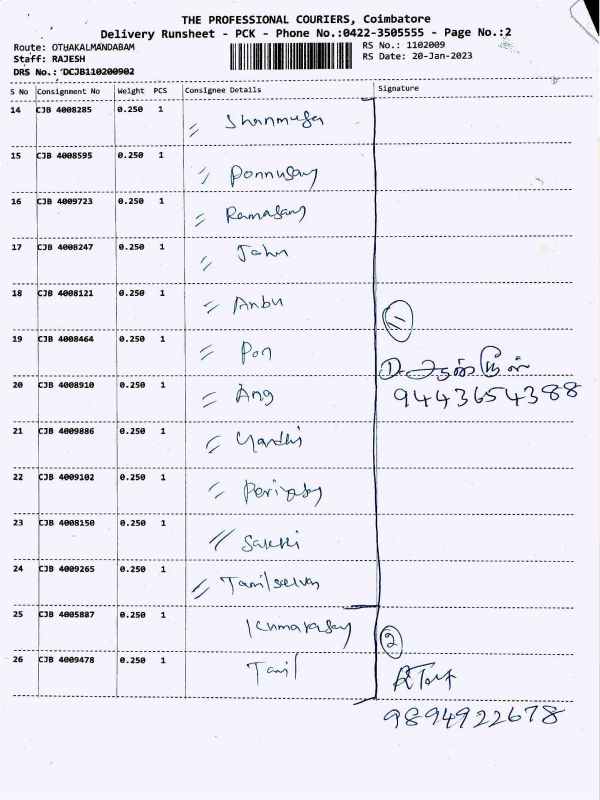 THE PROFESSIONAL COURIERS, Coimbatore
Delivery Runsheet - PCK - Phone No.:0422-3505555 - Page No.:2
Route: OTHAKALMANDABAM
RS No.: 1102009
Staff: RAJESH
RS Date: 20-Jan-2023
DRS No.: DCJB110200902
S No Consignment No Weight PCS Consignee Details Signature
14 CJB 4008285 0.250 1 〃 Shanmuga
15 CJB 4008595 0.250 1 〃 Ponnusamy
16 CJB 4009723 0.250 1 〃 Ramasamy
17 CJB 4008247 0.250 1 〃 John
18 CJB 4008121 0.250 1 〃 Anbu
11
19 CJB 4008464 0.250 1 〃 Pon
20 CJB 4008910 0.250 1 〃 Ang
9443654388
21 CJB 4009886 0.250 1 〃 Gandhi
22 CJB 4009102 0.250 1 〃 Periyasamy
23 CJB 4008150 0.250 1 〃 Sakthi
24 CJB 4009265 0.250 1 〃 Tamilselvan
25 CJB 4005887 0.250 1 Kumarasamy
2
26 CJB 4009478 0.250 1 Tamil
9894922678